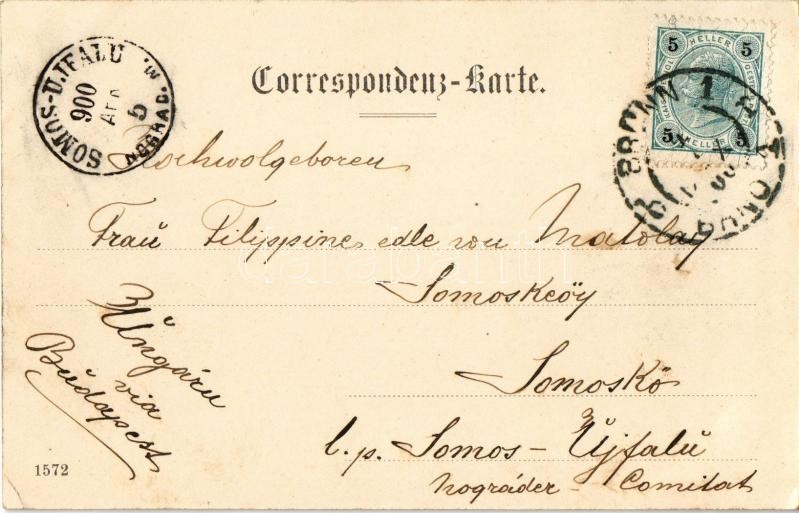 SOMOS-UJFALU
900
5
NOGRAD. M.
Correspondenz-Karte.
5 HELLER 5
5 HELLER 5
BRÜNN 1
BRNO
Hochwolgeboren
Fraŭ Filippine edle von Matolay
darabanth
Somoskeöy
Somoskő
l.p. Somos-Újfalŭ
Nográder - Comitat
Ŭngarn
via
Bŭdapest
1572